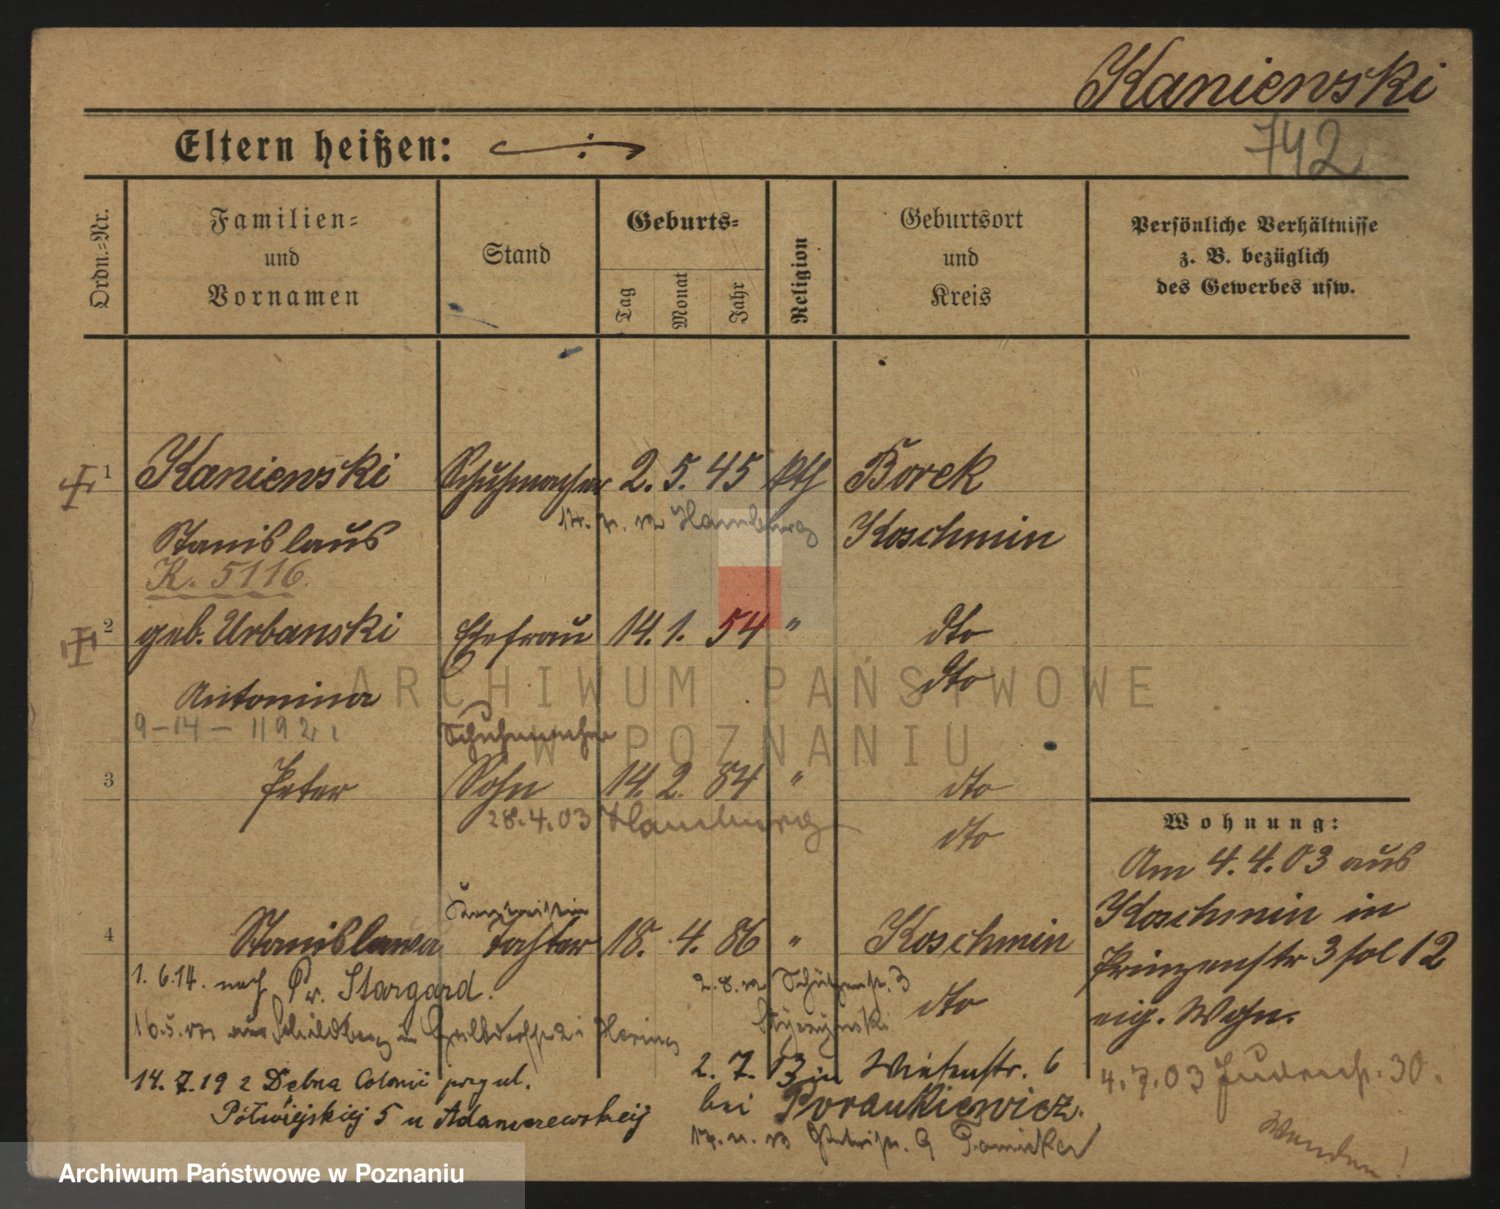 Kaniewski
742
Eltern heißen: ·/·
Ordn.-Nr.
Familien-
und
Vornamen
Stand
Geburts-
Tag
Monat
Jahr
Religion
Geburtsort
und
Kreis
Persönliche Verhältnisse
z. B. bezüglich
des Gewerbes usw.
1 Kaniewski Schuhmacher 2. 5. 45 kth Borek
Hamburg
Stanislaus Koschmin
K. 5116
2 geb. Urbanski Ehefrau 14. 1. 54 " dto
Antonina dto
9-14-1192
Schuhmacher
3 Peter Sohn 14. 2. 84 " dto
28.4.03 Hamburg dto
Wohnung:
Am 4.4.03 aus
Koschmin in
Prinzenstr 3 12
eig. Wohn.
4.7.03 30.
Wenden!
4 Stanislawa Tochter 18. 4. 86 " Koschmin
dto
1. 6.14. nach Pr. Stargard.
2.8. Schützenstr. 3
16.5. aus Schildberg in
14.7.19 z Dębna Colonii przy ul.
Półwiejskiej 5 u Adamczewskiej
2. 7. 13 in Wiesenstr. 6
bei Poraukiewicz.
Petristr. 9
ARCHIWUM PAŃSTWOWE
W POZNANIU
Archiwum Państwowe w Poznaniu